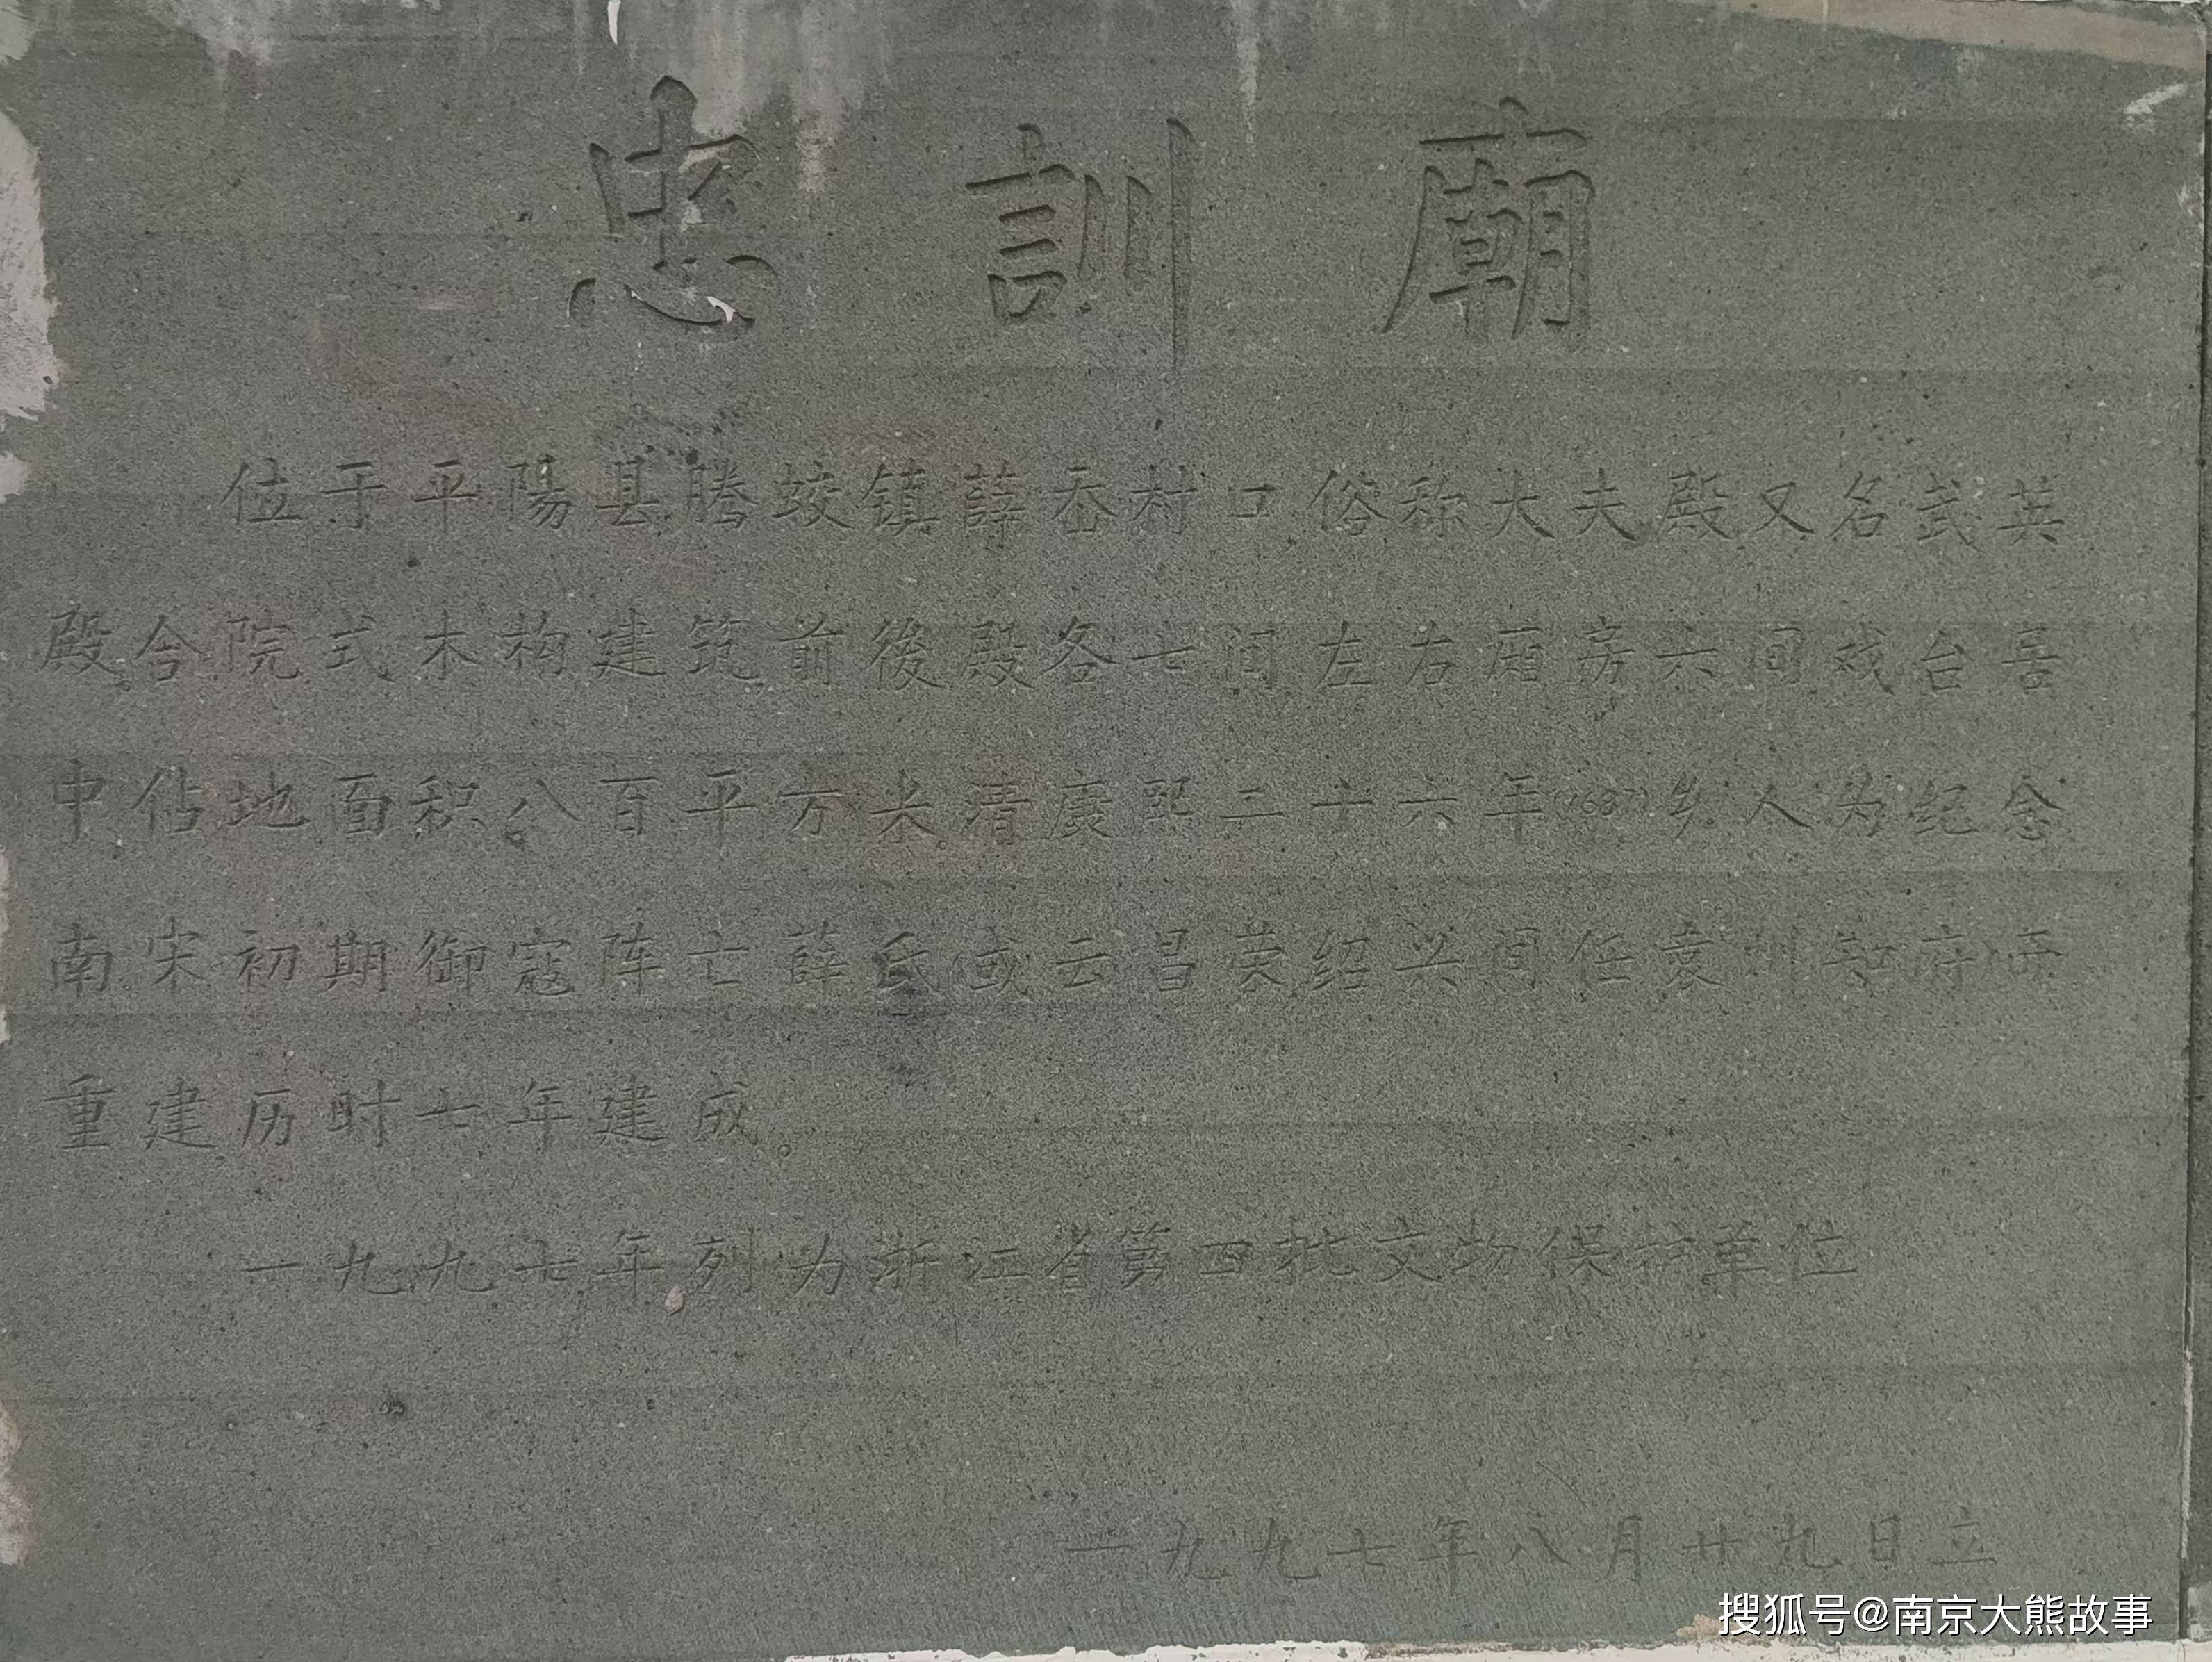 忠訓廟
位于平陽县腾蛟镇薛岙村口俗称大夫殿又名武英
殿。合院式木构建筑前後殿各七间左右厢房六间戏台居
中佔地面积八百平方米。清康熙二十六年(1687)乡人为纪念
南宋初期御寇阵亡薛氏(或云昌荣绍兴间任袁州知府)而
重建历时七年建成。
一九九七年列为浙江省第四批文物保护单位
一九九七年八月廿九日立
搜狐号@南京大熊故事